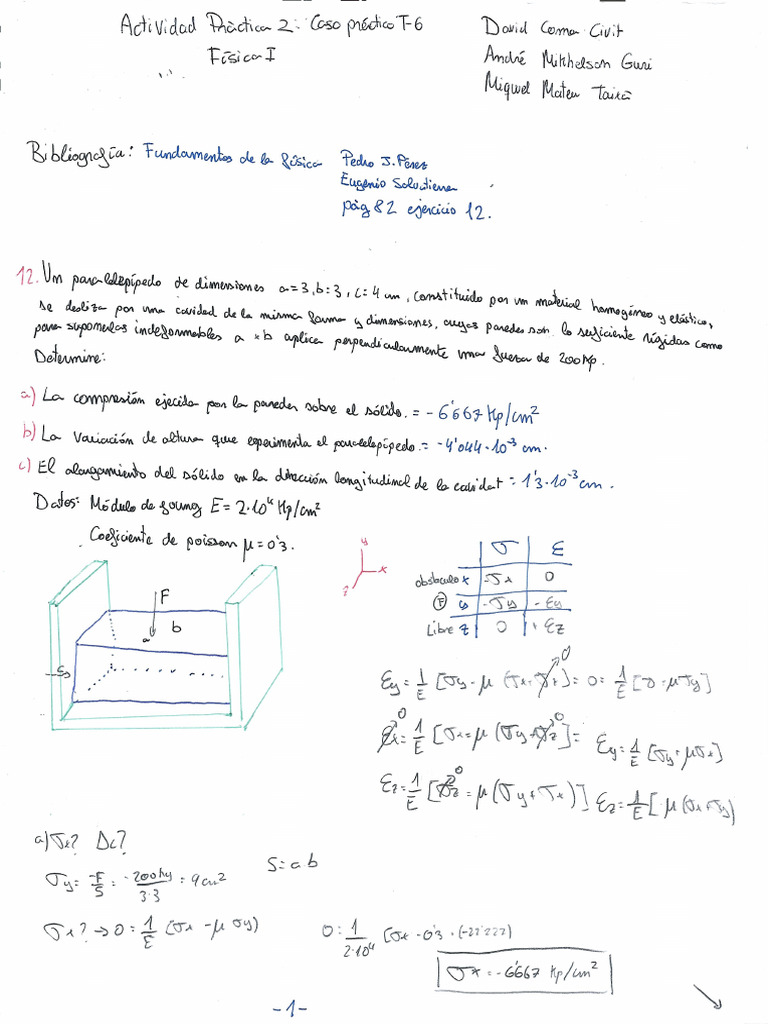 Actividad Práctica 2: Caso práctico T-6
Física I
David Coma Civit
André Mikhelson Guri
Miquel Mateu
Bibliografía: Fundamentos de la física Pedro J. Pérez
Eugenio Salvatierra
pág 82 ejercicio 12.
12. Um paralelepípedo de dimensiones a=3, b=3, c=4 cm, constituido por un material homogéneo y elástico,
se desliza por una cavidad de la misma forma y dimensiones, cuyas paredes son lo suficiente rígidas como
para suponerlas indeformables a × b aplica perpendicularmente una fuerza de 200 Kp.
Determine:
a) La compresión ejecida por la paredes sobre el sólido. = -6'667 Kp/cm²
b) La variación de altura que experimenta el paralelepípedo. = -4'044·10⁻³ cm.
c) El alargamiento del sólido en la dirección longitudinal de la cavidat = 1'3·10⁻³ cm.
Datos: Módulo de young E = 2·10⁴ Kp/cm²
Coeficiente de poisson μ = 0'3.
y
x
z
σ ε
obstáculo x -σx 0
F y -σy -εy
Libre z 0 +εz
F
b
a
εy = 1/E [σy - μ (σx - σz)] = 0 = 1/E [0 - μσy]
0
εx = 1/E [σx = μ (σy + σz)] =
0 0
εy = 1/E [σy - μσx]
εz = 1/E [σz = μ (σy + σx)]
0
εz = 1/E [ μ (σx + σy)
a) σx? Δc?
S = a b
σy = -F/S = -200 kg/3·3 = 9 cm²
σx? → 0 = 1/E (σx - μ σy)
0 = 1/2·10⁴ [σx - 0'3 · (-22'222)]
σx = -6'667 Kp/cm²
-1-